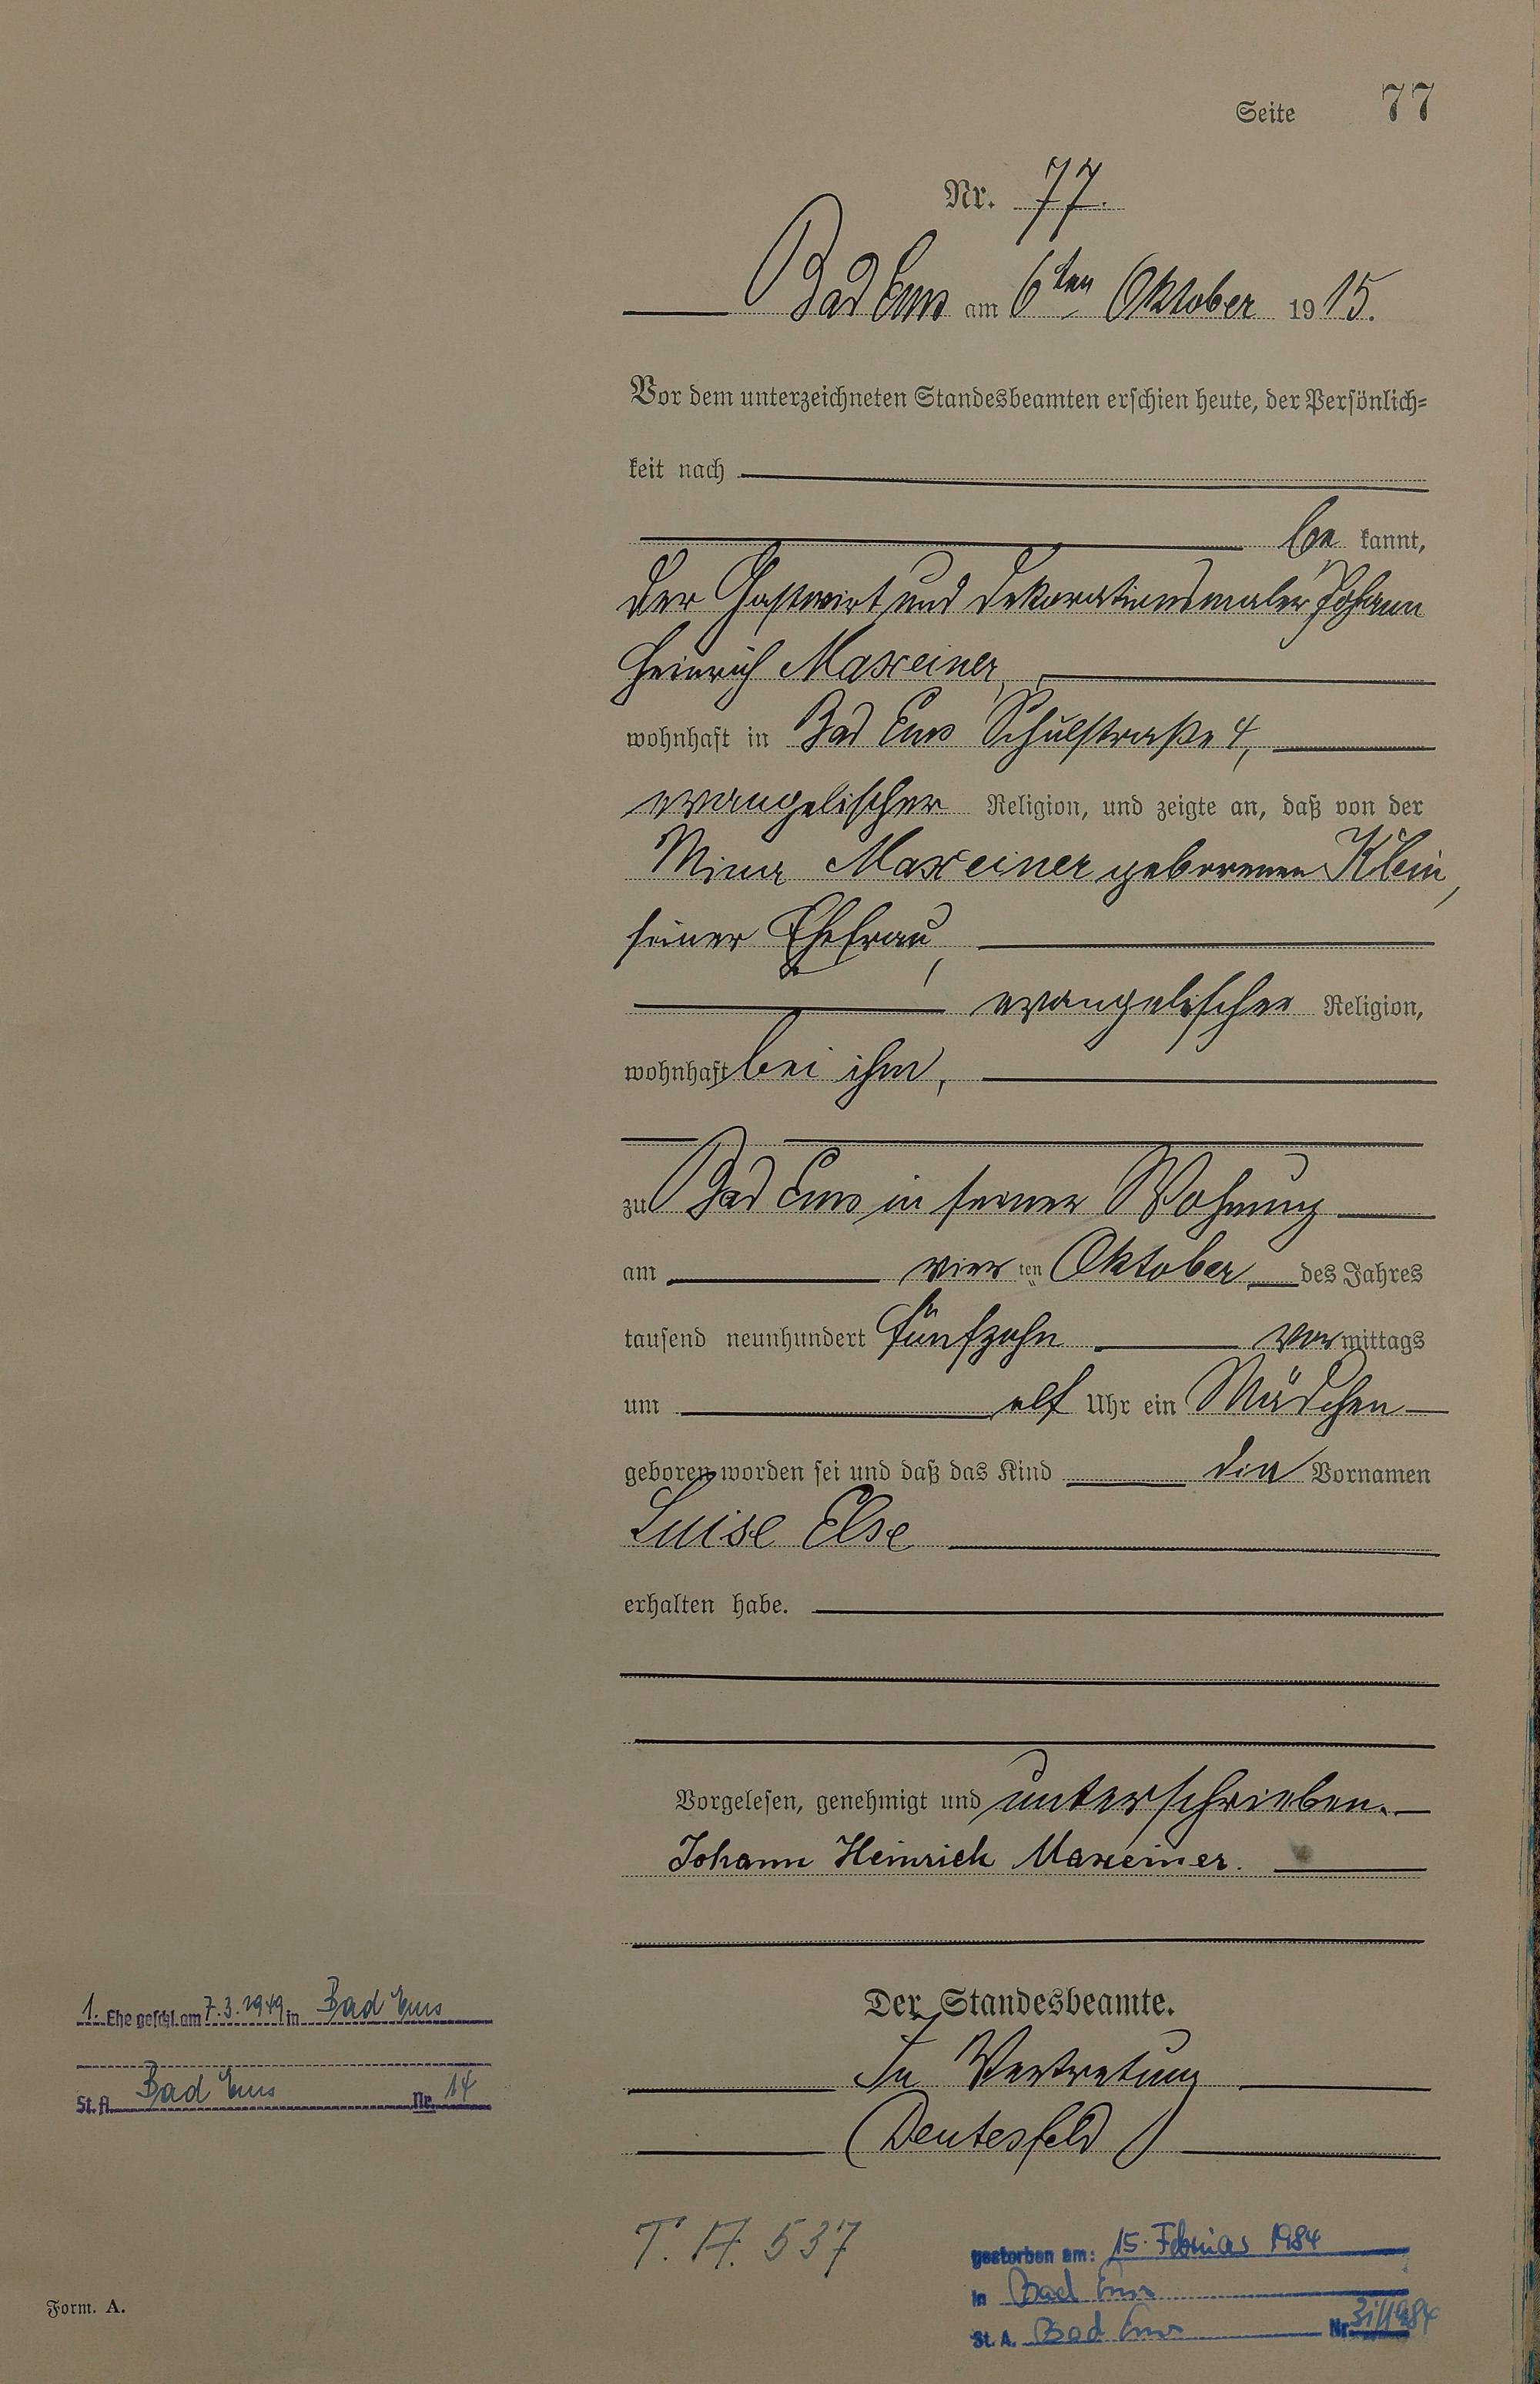 Seite 77
Nr. 77.
Bad Ems am 6ten Oktober 1915.
Vor dem unterzeichneten Standesbeamten erschien heute, der Persönlich-
keit nach
be kannt,
der Gastwirt und Dekorationsmaler Johann
Heinrich Maxeiner,
wohnhaft in Bad Ems Schulstraße 4,
evangelischer Religion, und zeigte an, daß von der
Mina Maxeiner geborenen Klein,
seiner Ehefrau,
evangelischer Religion,
wohnhaft bei ihm,
zu Bad Ems in seiner Wohnung
am vier ten Oktober des Jahres
tausend neunhundert fünfzehn vor mittags
um elf Uhr ein Mädchen
geboren worden sei und daß das Kind die Vornamen
Luise Else
erhalten habe.
Vorgelesen, genehmigt und unterschrieben.
Johann Heinrich Maxeiner.
Der Standesbeamte.
In Vertretung
(Deutesfeld)
1. Ehe geschl. am 7.3.1949 in Bad Ems
St. A. Bad Ems Nr. 14
T. A. 537
gestorben am: 15. Februar 1984
in Bad Ems
St. A. Bad Ems Nr.
Form. A.